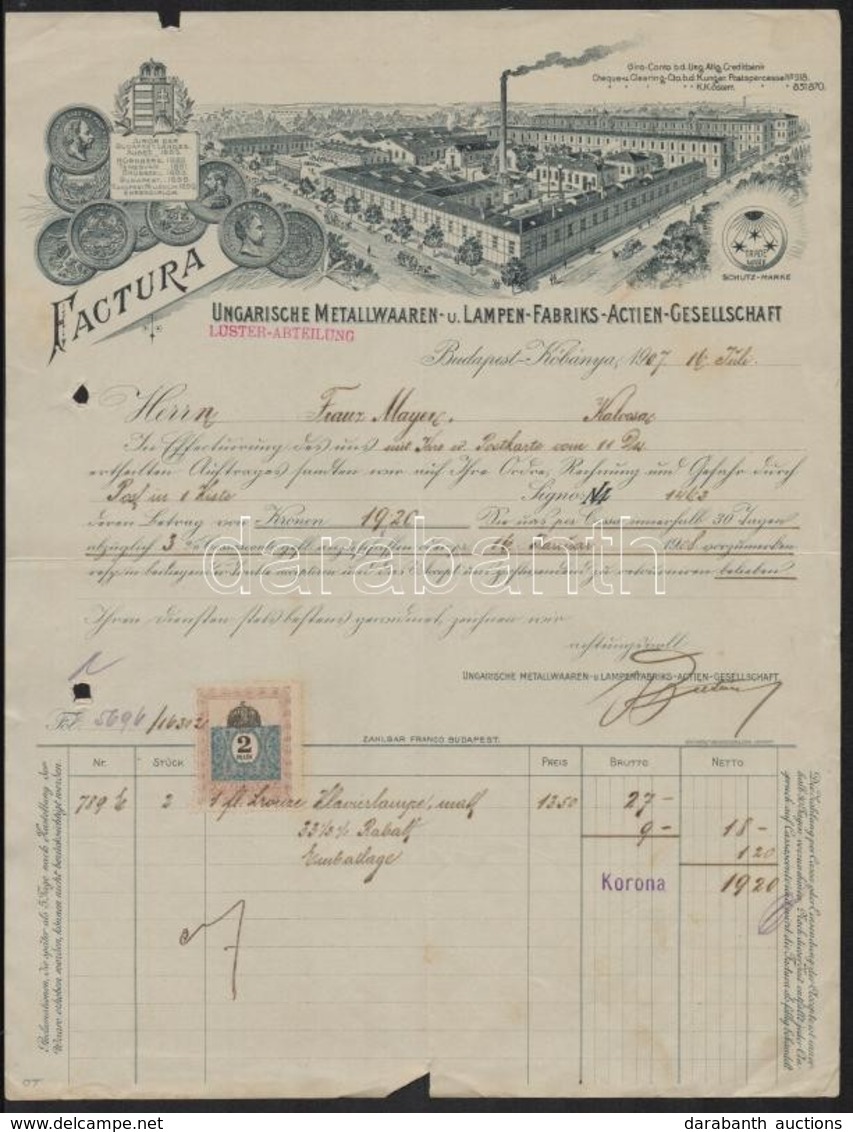 Giro-Conto b.d. Ung. Allg. Creditbank
Cheque- u. Clearing-Cto. b.d. K. ungar. Postsparcasse No 918.
K.K. Österr. 851870.
JUROR DER
BUDAPESTER LANDES-
AUSST. 1885.
NÜRNBERG, 1885.
TEMESVAR, 1891.
BUDAPEST, 1896.
FACTURA
TRADE
MARK
SCHUTZ-MARKE
UNGARISCHE METALLWAAREN- U. LAMPEN-FABRIKS-ACTIEN-GESELLSCHAFT
LUSTER-ABTEILUNG
Budapest-Kőbánya, 1907 16 Juli.
Herrn Franz Mayer, Kalocsa
In Effectuirung des uns mit Ihre u. Postkarte vom 11 Ds.
ertheilten Auftrages sandten wir auf Ihre Ordre, Rechnung und Gefahr durch
Post in 1 Kiste Signo: 1463
deren Betrag von Kronen 1920 Sie uns per Cassa innerhalb 30 Tagen
abzüglich 3 % 16 Januar 1908 vorzumerken
zu retourniren belieben
Ihren Diensten stets bestens gewidmet, zeichnen wir
achtungsvoll
UNGARISCHE METALLWAAREN- U. LAMPENFABRIKS-ACTIEN-GESELLSCHAFT
Fol. 5696/16302
2
ZAHLBAR FRANCO BUDAPEST.
Nr. STÜCK PREIS BRUTTO NETTO
789 2 1 fl. bronze Klavierlampe, matt 1350 27-
33⅓% Rabatt 9- 18-
Emballage 120
Korona 1920
Reclamationen, die später als 5 Tage nach Zustellung der
Waare erhoben werden, können nicht berücksichtigt werden.
darabanth
darabanth auctions